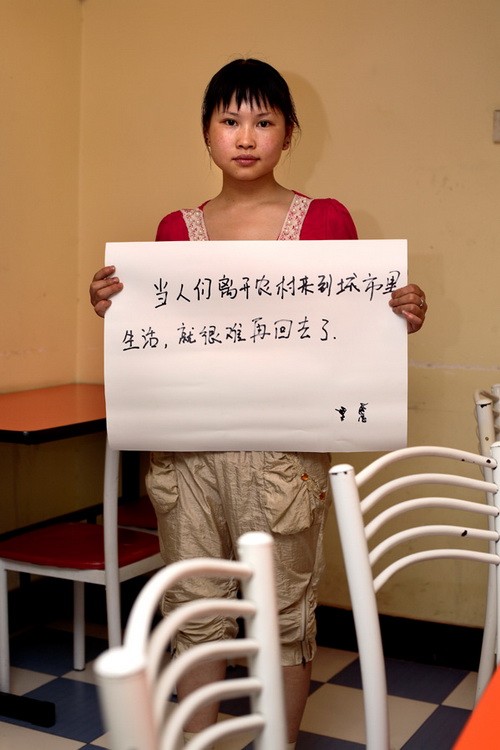 当人们离开农村来到城市里
生活，就很难再回去了.